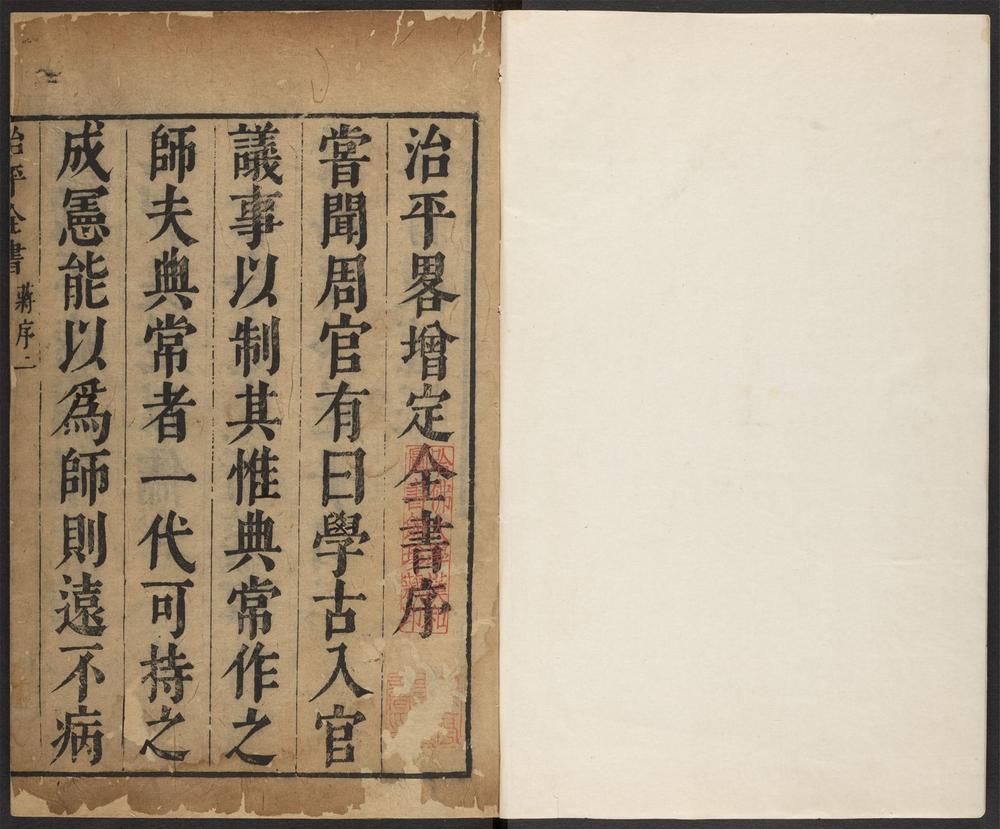 治平畧增定全書序
嘗聞周官有曰學古入官
議事以制其惟典常作之
師夫典常者一代可持之
成憲能以爲師則遠不病
治平全書 蔣序 二